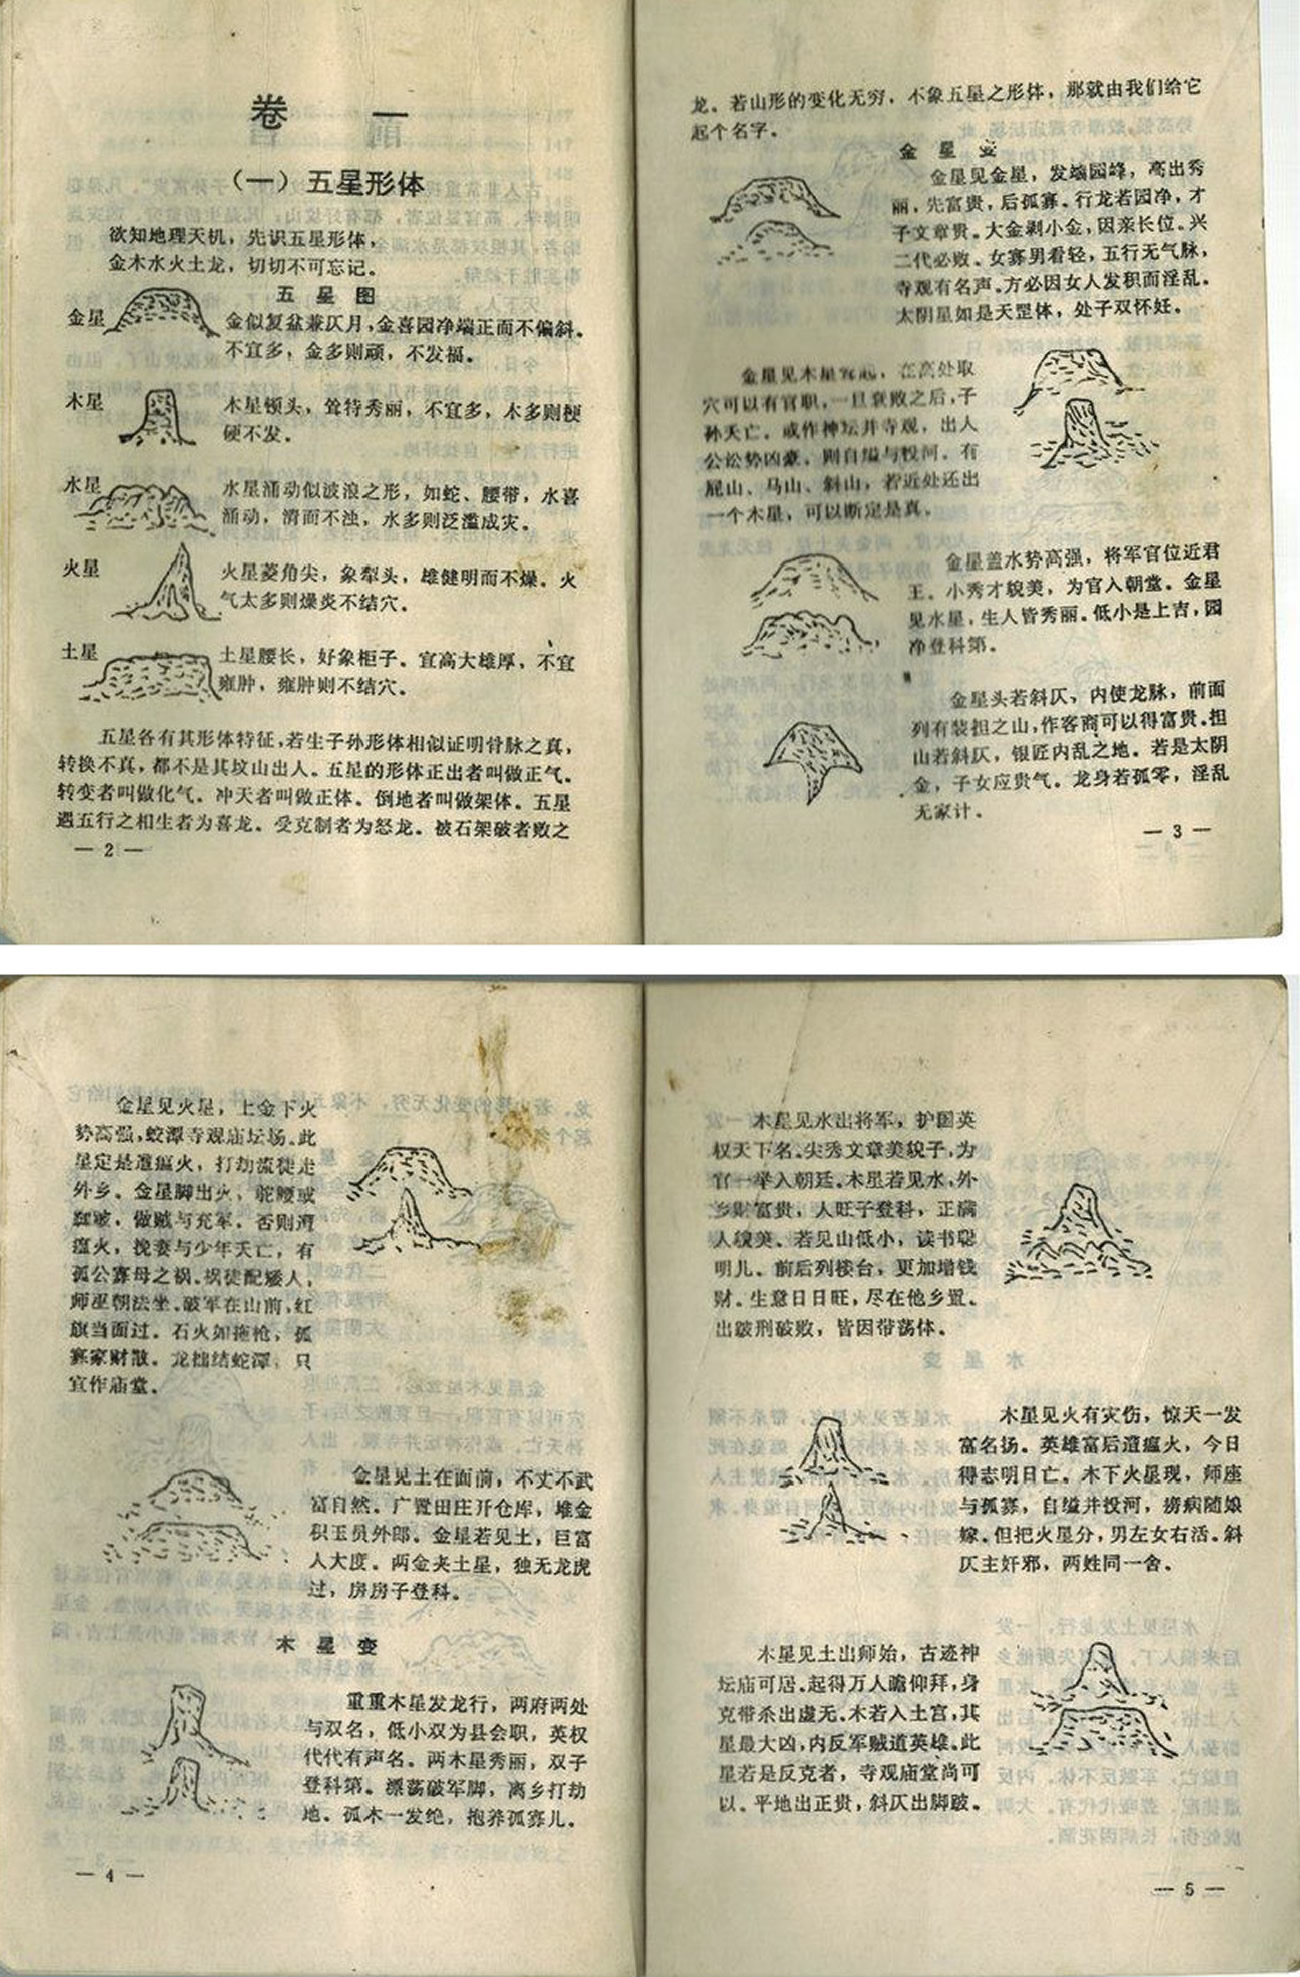 卷 一
（一）五星形体
欲知地理天机，先识五星形体，
金木水火土龙，切切不可忘记。
五 星 图
金星
金似复盆兼仄月，金喜园净端正而不偏斜。
不宜多，金多则顽，不发福。
木星
木星顿头，耸特秀丽，不宜多，木多则梗
硬不发。
水星
水星涌动似波浪之形，如蛇、腰带，水喜
涌动，清而不浊，水多则泛滥成灾。
火星
火星菱角尖，象犁头，雄健明而不燥。火
气太多则燥炎不结穴。
土星
土星腰长，好象柜子。宜高大雄厚，不宜
雍肿，雍肿则不结穴。
五星各有其形体特征，若生子孙形体相似证明骨脉之真，
转换不真，都不是其坟山出人。五星的形体正出者叫做正气。
转变者叫做化气。冲天者叫做正体。倒地者叫做架体。五星
遇五行之相生者为喜龙。受克制者为怒龙。被石架破者败之
— 2 —
龙。若山形的变化无穷，不象五星之形体，那就由我们给它
起个名字。
金 星 变
金星见金星，发端园峰，高出秀
丽，先富贵，后孤寡。行龙若园净，才
子文章贵。大金剥小金，因亲长位。兴
二代必败。女寡男看轻，五行无气脉，
寺观有名声。方必因女人发积而淫乱。
太阴星如是天罡体，处子双怀妊。
金星见木星 ，在高处取
穴可以有官职，一旦衰败之后，子
孙夭亡。或作神坛并寺观，出人
公讼势凶豪。则自缢与投河。有
屍山、马山、斜山，若近处还出
一个木星，可以断定是真。
金星盖水势高强，将军官位近君
王。小秀才貌美，为官入朝堂。金星
见水星，生人皆秀丽。低小是上吉，园
净登科第。
金星头若斜仄，内使龙脉，前面
列有装担之山，作客商可以得富贵。担
山若斜仄，银匠内乱之地。若是太阴
金，子女应贵气。龙身若孤零，淫乱
无家计。
— 3 —
金星见火星，上金下火
势高强，蛟潭寺观庙坛场。此
星定是遭瘟火，打劫流徒走
外乡。金星脚出火，驼腰或
跛，做贼与充军。否则遭
瘟火，挽妻与少年夭亡，有
孤公寡母之祸。祸徒配矮人，
师巫朝法坐。破军在山前，红
旗当面过。石火如拖枪，孤
寡家财散。龙拙结蛇潭，只
宜作庙堂。
金星见土在面前，不丈不武
富自然。广置田庄开仓库，堆金
积玉员外郎。金星若见土，巨富
人大度。两金夹土星，独无龙虎
过，房房子登科。
木 星 变
重重木星发龙行，两府两处
与双名，低小双为县会职，英权
代代有声名。两木星秀丽，双子
登科第。漂荡破军脚，离乡打劫
地。孤木一发绝，抱养孤寡儿。
— 4 —
木星见水出将军，护国英
权天下名。尖秀文章美貌子，为
官一举入朝廷。木星若见水，外
乡财富贵，人旺子登科，正满
人貌美。若见山低小，读书聪
明儿。前后列楼台，更加增钱
财。生意日日旺，尽在他乡置。
出跛刑破败，皆因带荡体。
木星见火有灾伤，惊天一发
富名扬。英雄富后遭瘟火，今日
得志明日亡。木下火星现，师座
与孤寡，自缢并投河，痨病随娘
嫁。但把火星分，男左女右活。斜
仄主奸邪，两姓同一舍。
木星见土出师始，古迹神
坛庙可居。起得万人瞻仰拜，身
克带杀出虚无。木若入土宫，其
星最大凶，内反军贼道英雄。此
星若是反克者，寺观庙堂尚可
以。平地出正贵，斜仄出脚跛。
— 5 —